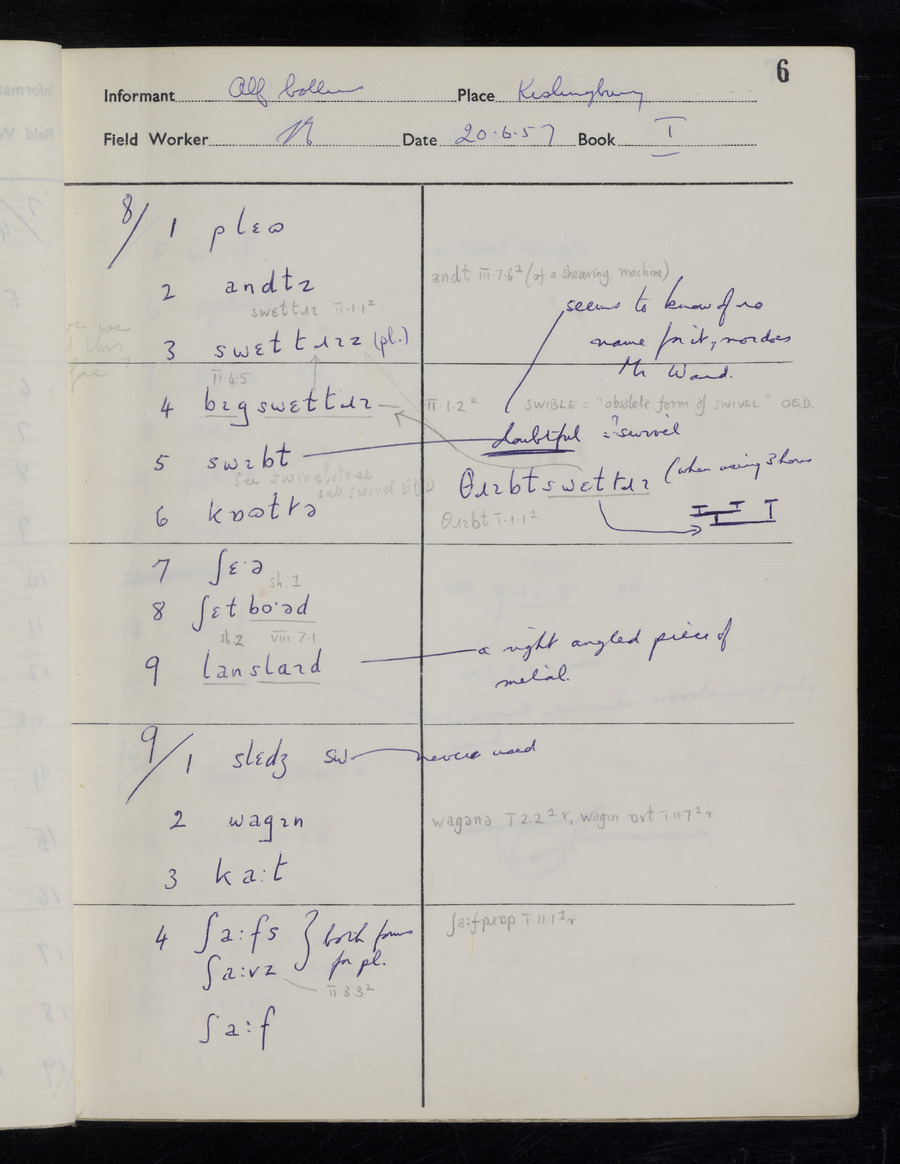 6
Informant Alf Place Kislingbury
Field Worker Date 20.6.57 Book I
8/ 1 plɛɷ
2 andlz
andl III.7.6² (of a shearing machine)
swɛtlɪz II.1.1²
seems to know of no
name for it, nor does
Mr Ward.
3 swɛtlɹɪz (pl.)
II.4.5
4 bɪg swɛtlɹɪ
II.1.2²
SWIBLE = "obsolete form of SWIVEL" OED.
5 swɪbl
doubtful = ?swivel
see swivel-tree
sub swivel EDD
θɹɪbl swɛtlɹɪ (when using 3 horses
θɹɪbl I.1.1²
6 kɒɷltə
7 ʃɛ·ə
sh. 1
8 ʃɛl bo·əd
sh.2 VIII.7.1
9 lanslaɪd
a right angled piece of
metal.
9/ 1 slɛdʒ sw. never used
2 wagɪn
wagənə I.2.2² r, wagɪn I.11.7² r
3 ka:t
4 ʃa:fs } both forms
ʃa:vz for pl.
ʃa:f pɹɒp I.11.1² r
II.3.3²
ʃa:f